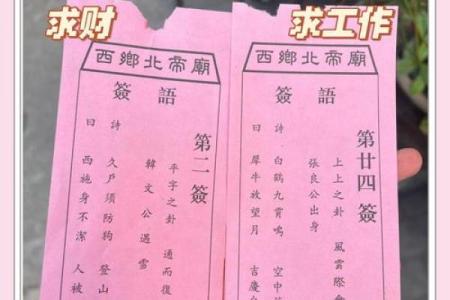 求财
西鄉北帝廟
簽語
第二簽
平字之卦 通而復
韓文公遇雪
詩 久戶須防狗 登山
曰 西施身不潔 人被
求工作
西鄉北帝廟
簽語
第廿四簽
上上之卦 風雲際會
張良公出身
詩 白鶴九霄鳴 空中
曰 犀牛放望月 吉慶